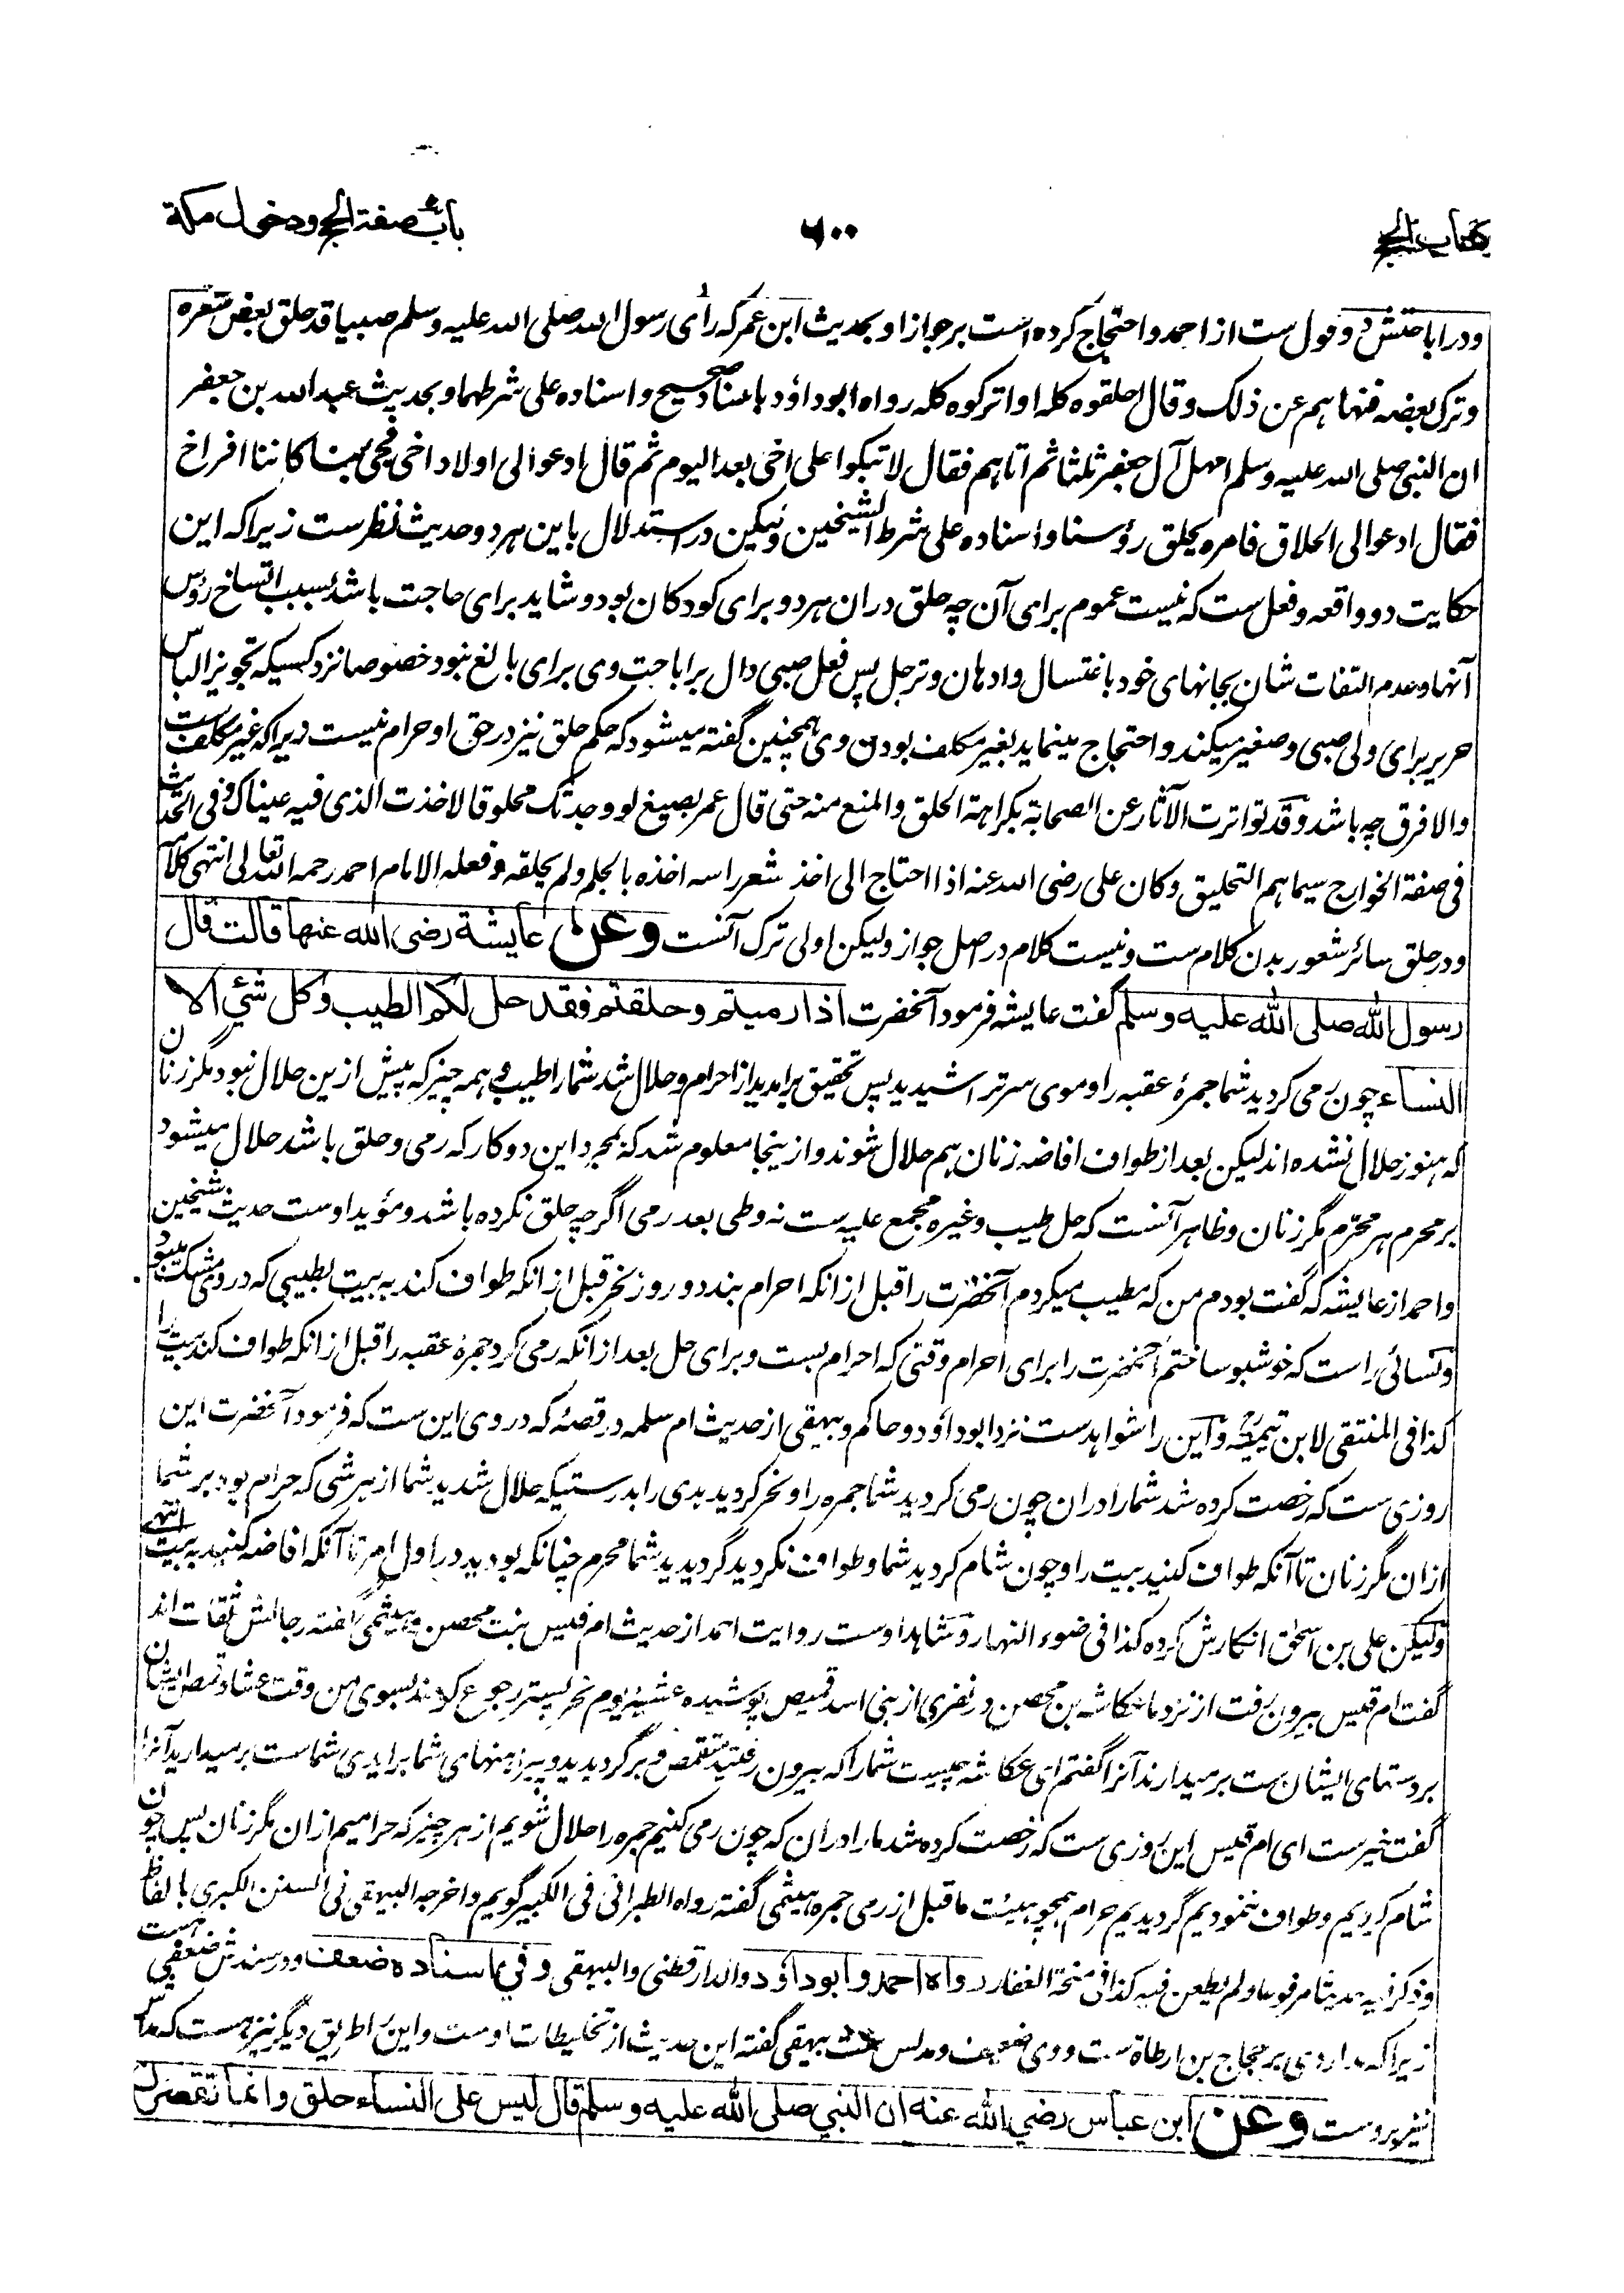 كتاب الحج
٦٠٠
باب صفة الحج ودخول مكة
ودر اباحتش دو قول ست از احمد و احتجاج کرده است بر جواز او بحدیث ابن عمر که رأی رسول الله صلی الله علیه وسلم صبیا قد حلق بعض شعره
وترک بعضه فنهاهم عن ذلک وقال احلقوه کله او اترکوه کله رواه ابوداؤد باسناد صحیح و اسناده علی شرطهما و بحدیث عبد الله بن جعفر
ان النبی صلی الله علیه وسلم امهل آل جعفر ثلثا ثم اتاهم فقال لا تبکوا علی اخی بعد الیوم ثم قال ادعوا لی اولاد اخی فجئ بنا کاننا افراخ
فقال ادعوا لی الحلاق فامره یحلق رؤسنا و اسناده علی شرط الشیخین ولیکن در استدلال باین هر دو حدیث نظرست زیرا که این
حکایت دو واقعه و فعل ست که نیست عموم برای آن چه حلق دران هر دو برای کودکان بود و شاید برای حاجت باشد بسبب اتساخ رؤس
آنها و عدم التفات شان بجانهای خود باغتسال و ادهان و ترجل پس فعل صبی دال بر اباحت وی برای بالغ نبود خصوصا نزد کسیکه تجویز الباس
حریر برای ولی صبی و صغیر میکند و احتجاج مینماید بغیر مکلف بودن وی همچنین گفته میشود که حکم حلق نیز در حق او حرام نیست زیرا که غیر مکلف ست
والا فرق چه باشد و قد تواترت الآثار عن الصحابة بکراهة الحلق والمنع منه حتی قال عمر لصبیغ لو وجدتک محلوقا لاخذت الذی فیه عیناک و فی الحدیث
فی صفة الخوارج سیماهم التحلیق و کان علی رضی الله عنه اذا احتاج الی اخذ شعر راسه اخذه بالجلم ولم یحلقه و فعله الامام احمد رحمه الله تعالی انتهی کلامه
و در حلق سائر شعور بدن کلام ست و نیست کلام در اصل جواز ولیکن اولی ترک آنست وعن عایشة رضی الله عنها قالت قال
رسول الله صلی الله علیه وسلم گفت عایشه فرمود آنحضرت اذا رمیتم وحلقتم فقد حل لکم الطیب وکل شئ الا
النساء چون رمی کردید شما جمرهٔ عقبه را و موی سر تراشیدید پس تحقیق برآمدید از احرام و حلال شد شما را طیب و همه چیز که پیش ازین حلال نبود مگر زنان
که هنوز حلال نشده اند لیکن بعد از طواف افاضه زنان هم حلال شوند و ازینجا معلوم شد که بمجرد این دو کار که رمی و حلق باشد حلال میشود
بر محرم هر محرّم مگر زنان و ظاهر آنست که حل طیب و غیره مجمع علیه ست نه وطی بعد رمی اگرچه حلق نکرده باشد و مؤید اوست حدیث شیخین
و احمد از عایشه که گفت بودم من که مطیب میکردم آنحضرت را قبل ازانکه احرام بندد و روز نحر قبل ازانکه طواف کند به بیت بطیبی که در وی مشک میبود
و نسائی راست که خوشبو ساختم آنحضرت را برای احرام وقتی که احرام بست و برای حل بعد ازانکه رمی کرد جمرهٔ عقبه را قبل ازانکه طواف کند بیت را
کذا فی المنتقی لابن تیمیة و این را شواهد ست نزد ابوداؤد و حاکم و بیهقی از حدیث ام سلمه در قصهٔ که در وی این ست که فرمود آنحضرت این
روزی ست که رخصت کرده شد شما را دران چون رمی کردید شما جمره را و نحر کردید هدی را بدرستیکه حلال شدید شما از هر شئ که حرام بود بر شما
ازان مگر زنان تا آنکه طواف کنید بیت را و چون شام کردید شما و طواف نکردید گردیدید شما محرم چنانکه بودید در اول امر تا آنکه افاضه کنید به بیت انتهی
ولیکن علی بن اسحق انکارش کرده کذا فی ضوء النهار و شاهد اوست روایت احمد از حدیث ام قیس بنت محصن و هیثمی گفته رجالش ثقات اند
گفت ام قیس بیرون رفت از نزد ما عکاشه بن محصن در نفری از بنی اسد قمیص پوشیده عشیهٔ یوم نحر پستر رجوع کردند بسوی من وقت عشا و قمص ایشان
بر دستهای ایشان ست برمیدارند آنرا گفتم ای عکاشه چیست شما را که بیرون رفتید متقمص و برگردیدید و پیرهنهای شما بر ایدی شماست برمیدارید آنرا
گفت خیرست ای ام قیس این روزی ست که رخصت کرده شد ما را دران که چون رمی کنیم جمره را حلال شویم از هر چیز که حرامیم ازان مگر زنان پس چون
شام کردیم و طواف ننمودیم گردیدیم حرام همچو هیئت ما قبل از رمی جمره هیثمی گفته رواه الطبرانی فی الکبیر گویم و اخرجه البیهقی فی السنن الکبری بالفاظ
و ذکر فیه حدیثا مرفوعا ولم یطعن فیه کذا فی منحة الغفار رواه احمد وابوداؤد والدارقطنی والبیهقی وفی اسناده ضعف و در سندش ضعفی هست
زیرا که مدار وی بر حجاج بن ارطاة ست و وی ضعیف و مدلس ست بیهقی گفته این حدیث از تخلیطات اوست و این را طریق دیگر نیز هست که مدارش
نیز بروست وعن ابن عباس رضی الله عنه ان النبی صلی الله علیه وسلم قال لیس علی النساء حلق وانما تقصرن